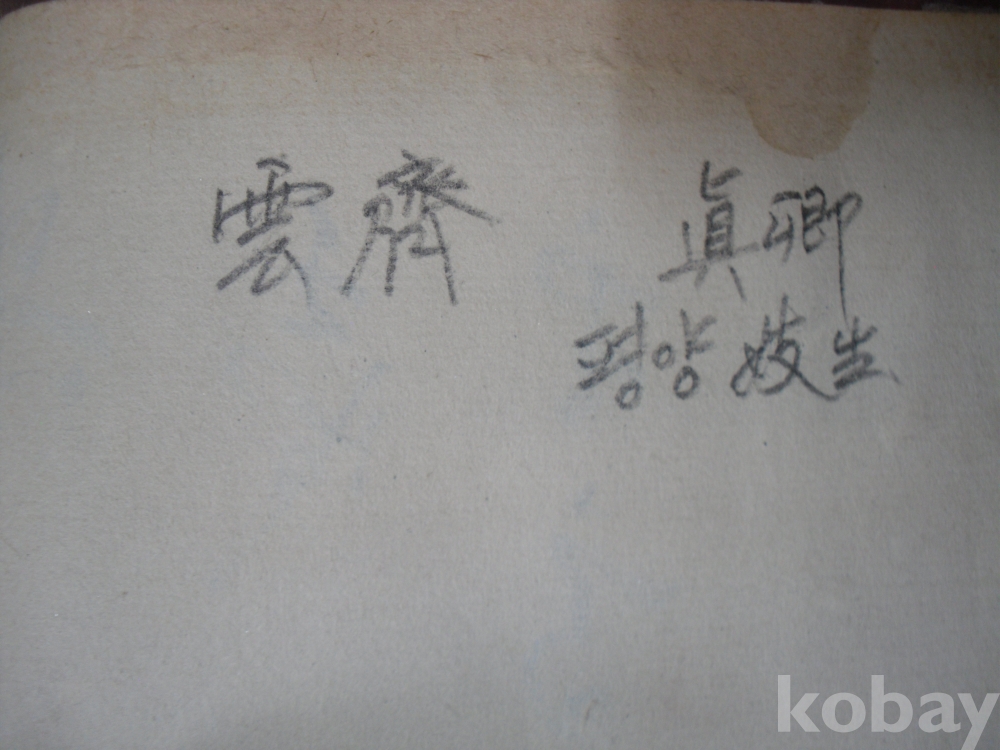 雲齊 眞卿
평양 妓生
kobay